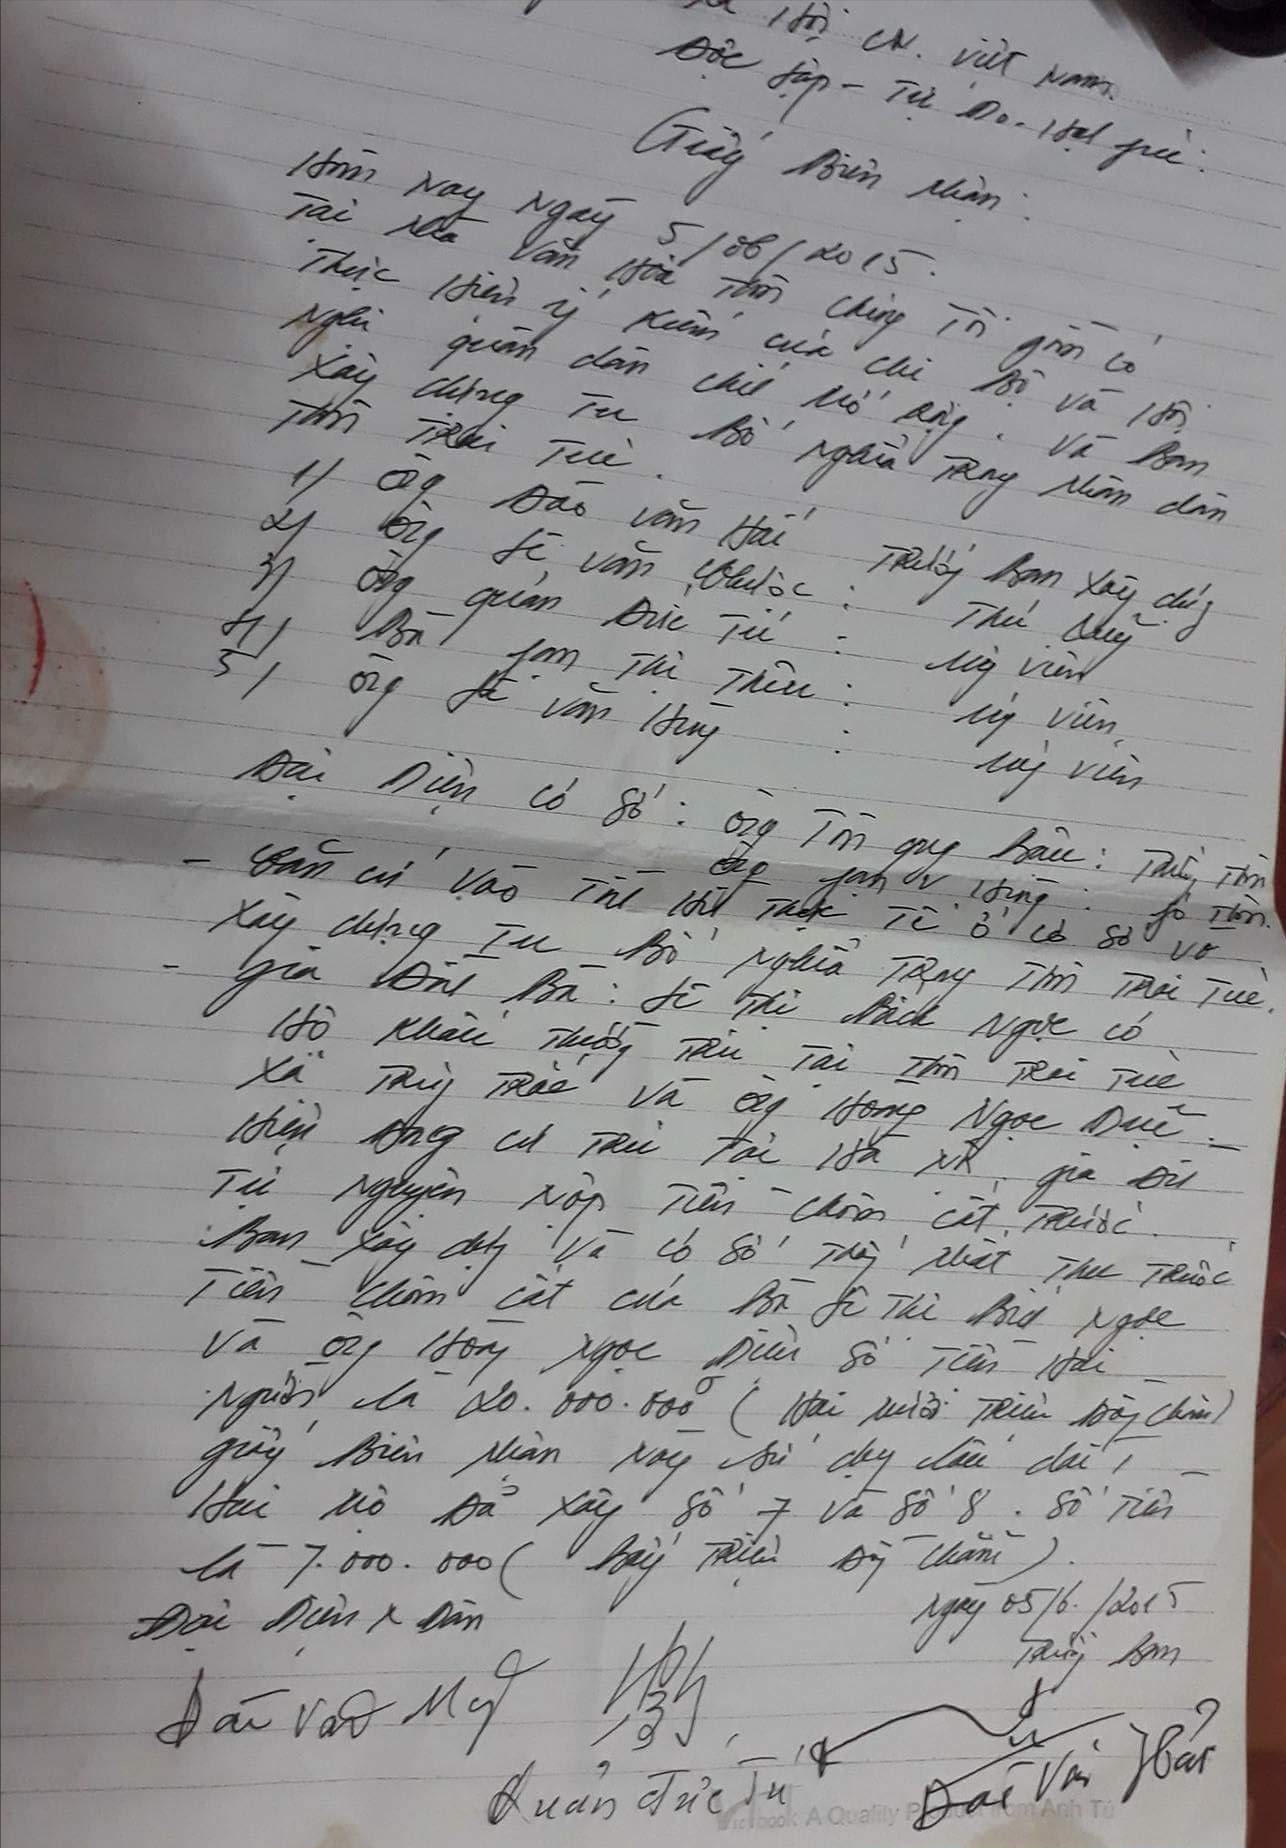 Hội CN. Việt Nam.
Độc lập - Tự Do - Hạh
Giấy Biên nhận:
Hôm nay ngày 5/06/2015.
Tại nhà văn Hóa thôn chúng Tôi gồm có
Thực Hiện ý kiến của chi Bộ và Hội
nghị quân dân chí mở rộng. Và Ban
Xây dựng Tu Bổ nghĩa Trang nhân dân
Thôn Trai Tuê.
1) Ông Đào văn Hải Trưởng Ban Xây dựng
2) Ông Lê văn : Thủ Quỹ
3) Ông quản Đức Tú : Uỷ viên
4) Bà Thị Thêu : Uỷ viên
5) Ông Lê văn Hùng : Uỷ viên
Đại Diện có Sở: Ông Tôn quy Bâu: Thôn
Ông v. Hùng. Thôn.
- Căn cứ vào Tình Hình Thực Tế ở cơ Sở về
Xây dựng Tu Bổ nghĩa Trang Thôn Trai Tuê.
- gia Đình Bà: Lê Thị Bích Ngọc có
Hộ khẩu Thường Trú Tại Thôn Trai Tuê
Xã Trưng Trắc và Ông Hoàng Ngọc
Hiện đang cư Trú Tại Hà Nội, gia Đình
Tự nguyện nộp Tiền chôn cất Trước.
Ban Xây dựng và cơ Sở Thống nhất Thu Trước
Tiền chôn cất của Bà Lê Thị Bích Ngọc
và Ông Hoàng Ngọc Số Tiền Hai
người là 20.000.000đ (Hai mươi Triệu đồng chẵn)
giấy Biên nhận này sử dụng lâu dài,
Hai mộ Đã xây Số 7 và Số 8. Số Tiền
là 7.000.000 (Bảy Triệu Đồng chẵn).
Đại Diện N Dân ngày 05/6/2015
Trưởng Ban
Văn
Quản Đức Tú Đào Văn Hải
book A Quality Product from Anh Tú